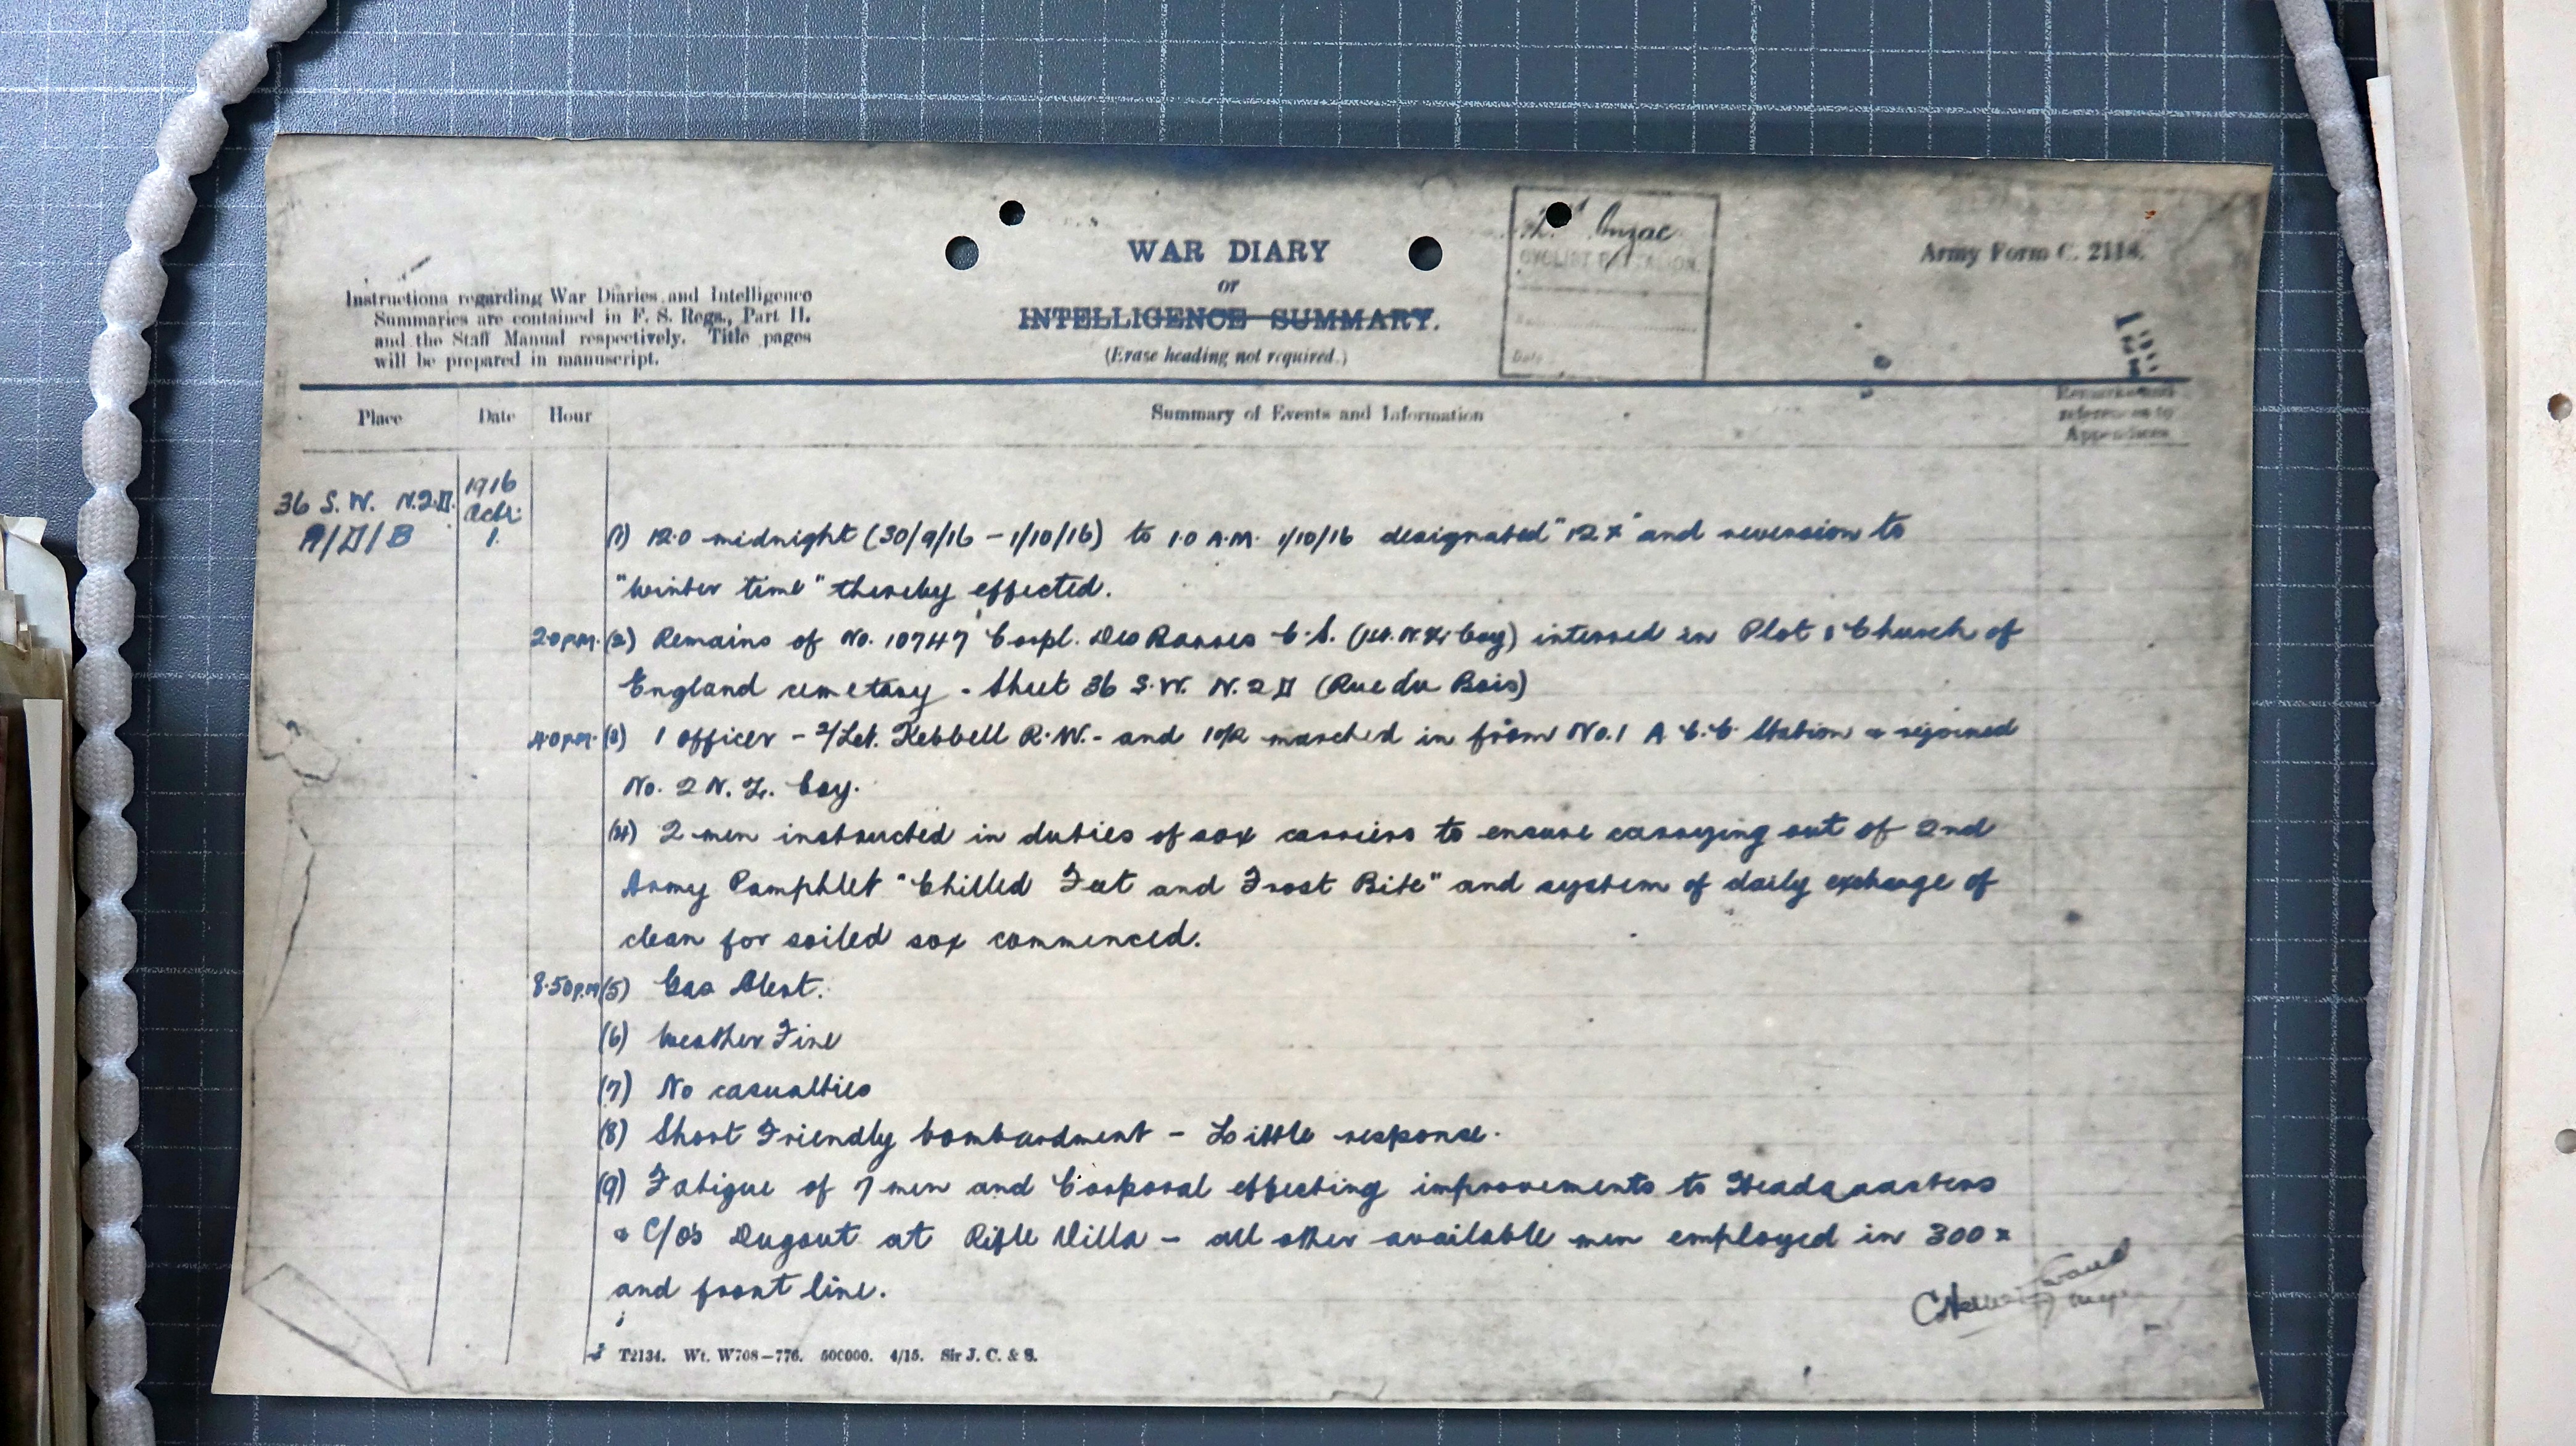 Anzac
CYCLIST BATTALION
Date
Army Form C. 2118.
WAR DIARY
or
INTELLIGENCE SUMMARY.
(Erase heading not required.)
Instructions regarding War Diaries and Intelligence
Summaries are contained in F. S. Regs., Part II.
and the Staff Manual respectively. Title pages
will be prepared in manuscript.
Place Date Hour Summary of Events and Information Remarks and
references to
Appendices
36 S.W. N.2.D. 1916
Octr.
A/D/B 1. (1) 12.0 midnight (30/9/16 – 1/10/16) to 1.0 A.M. 1/10/16 designated "12 x" and reversion to
"Winter time" thereby effected.
2.0 p.m. (2) Remains of No. 10747 Corpl. Des Barres C.S. (1st. N.Z. Coy) interred in Plot 1 Church of
England cemetary - Sheet 36 S.W. N.2 D (Rue du Bois)
4.0 p.m. (3) 1 officer – 2/Lt. Kebbell R.W. - and 1 O/R marched in from No. 1 A C.C. Station & rejoined
No. 2 N.Z. Coy.
(4) 2 men instructed in duties of sox carriers to ensure carrying out of 2nd
Army Pamphlet "Chilled Feet and Frost Bite" and system of daily exchange of
clean for soiled sox commenced.
8.50 p.m (5) Gas Alert.
(6) Weather Fine
(7) No casualties
(8) Short Friendly bombardment – Little response.
(9) Fatigue of 7 men and Corporal effecting improvements to Headquarters
& C/O's Dugout at Rifle Villa – all other available men employed in 300 x
and front line.
T2134. Wt. W708–776. 500000. 4/15. Sir J. C. & S.